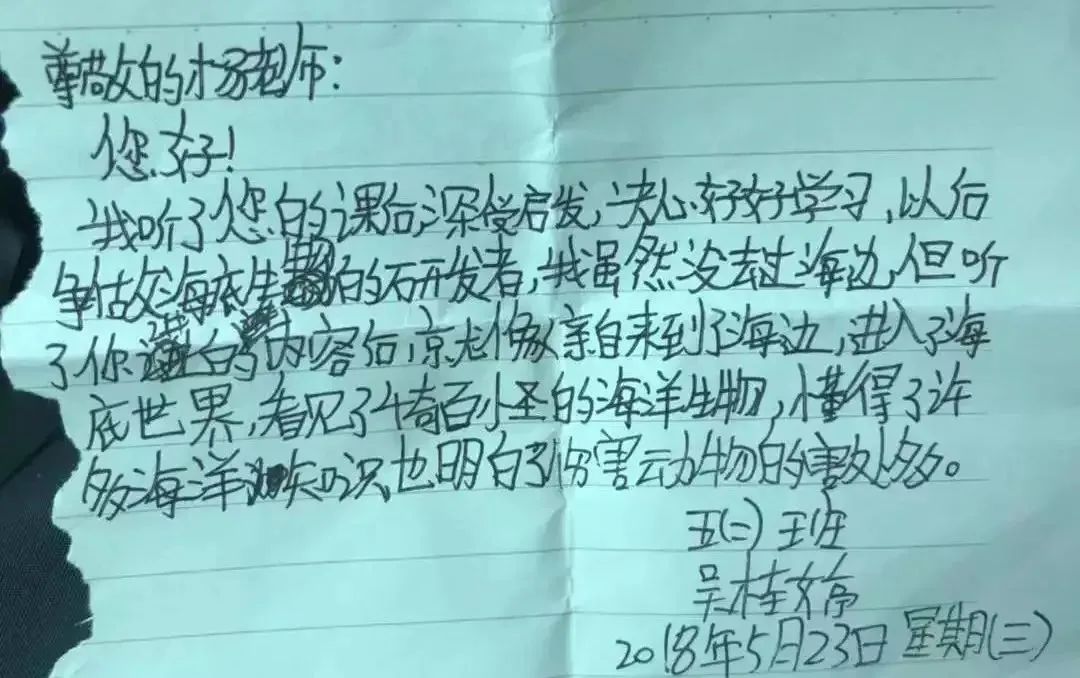 尊敬的杨老师：
您好！
我听了您的课后，深受启发，决心好好学习，以后
争做海底生物的研发者，我虽然没去过海边，但听
了你讲的内容后，就像亲自来到了海边，进入了海
底世界，看见了千奇百怪的海洋生物，懂得了许
多海洋知识，也明白了伤害动物的害处多。
五(二)班
吴桂婷
2018年5月23日 星期(三)